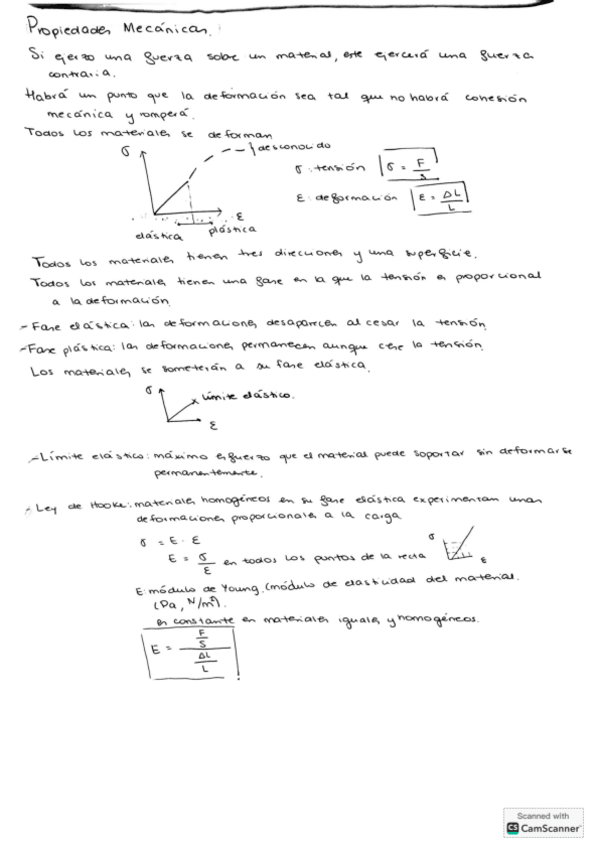 Propiedades Mecánicas.
Si ejerzo una fuerza sobre un material, este ejercerá una fuerza
contraria.
Habrá un punto que la deformación sea tal que no habrá cohesión
mecánica y romperá.
Todos los materiales se deforman
σ
desconocido
σ: tensión σ = F/S
ε: deformación ε = ΔL/L
ε
elástica plástica
Todos los materiales tienen tres direcciones y una superficie.
Todos los materiales tienen una fase en la que la tensión es proporcional
a la deformación.
- Fase elástica: las deformaciones desaparecen al cesar la tensión.
- Fase plástica: las deformaciones permanecen aunque cese la tensión.
Los materiales se someterán a su fase elástica.
σ
límite elástico.
ε
- Límite elástico: máximo esfuerzo que el material puede soportar sin deformarse
permanentemente.
- Ley de Hooke: materiales homogéneos en su fase elástica experimentan unas
deformaciones proporcionales a la carga
σ = E · ε
E = σ/ε en todos los puntos de la recta
σ
ε
E: módulo de Young. (módulo de elasticidad del material.
(Pa, N/m²).
es constante en materiales iguales y homogéneos.
E = F/S / ΔL/L
Scanned with
CS CamScanner